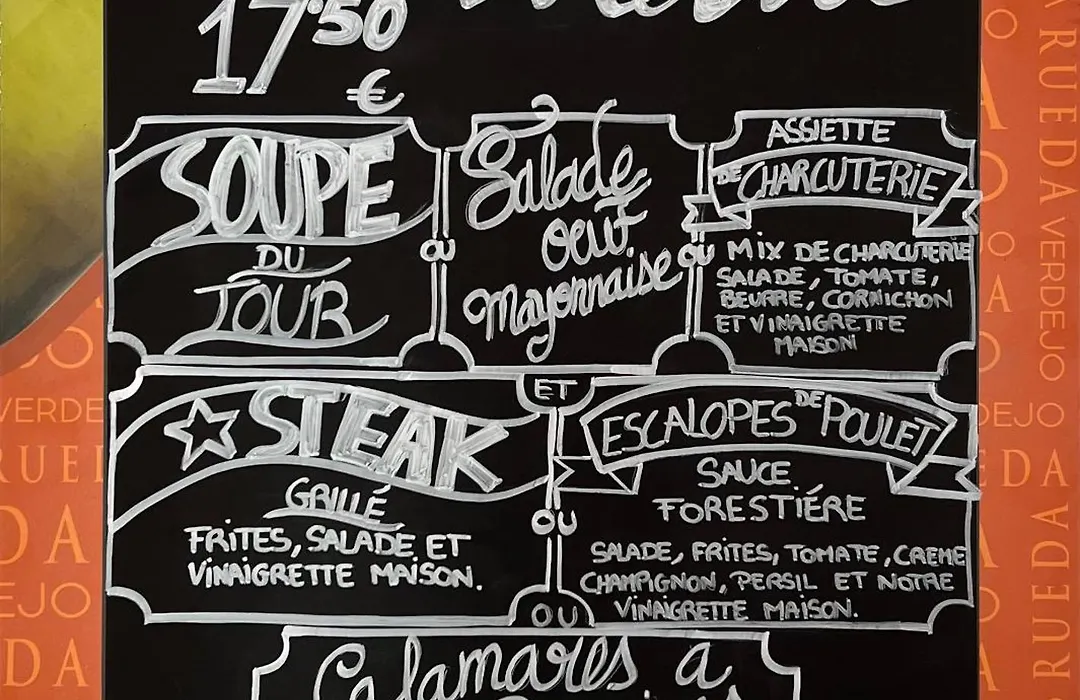 17'50
€
SOUPE
DU
JOUR
OU
Salade
oeuf
Mayonnaise
OU
ASSIETTE
DE CHARCUTERIE
MIX DE CHARCUTERIE
SALADE, TOMATE,
BEURRE, CORNICHON
ET VINAIGRETTE
MAISON
ET
STEAK
GRILLÉ
FRITES, SALADE ET
VINAIGRETTE MAISON.
OU
ESCALOPES DE POULET
SAUCE
FORESTIÉRE
SALADE, FRITES, TOMATE, CREME
CHAMPIGNON, PERSIL ET NOTRE
VINAIGRETTE MAISON.
OU
Calamares a
RUEDA
VERDEJO
RUEDA
VERDE
RUE
DA
EJO
DA
DEJO
EDA